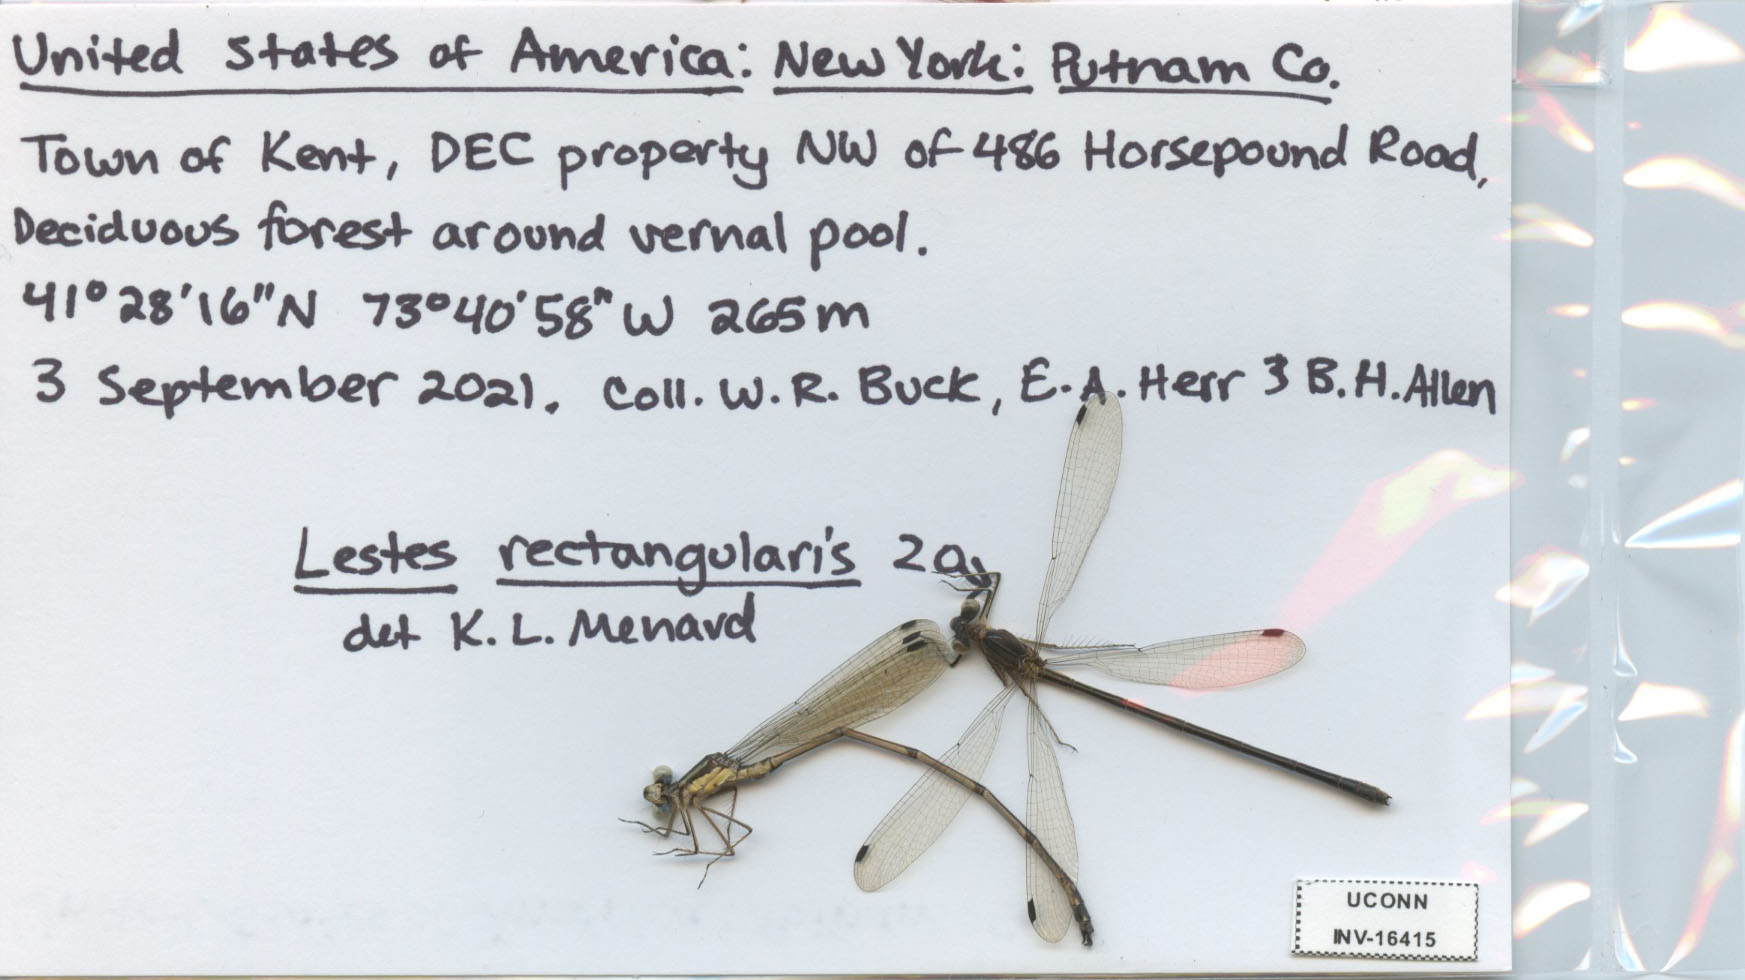 United States of America: New York: Putnam Co.
Town of Kent, DEC property NW of 486 Horsepound Road,
Deciduous forest around vernal pool.
41°28'16"N 73°40'58"W 265m
3 September 2021. Coll. W. R. Buck, E. A. Herr & B. H. Allen
Lestes rectangularis 2a
det K. L. Menard
UCONN
INV-16415